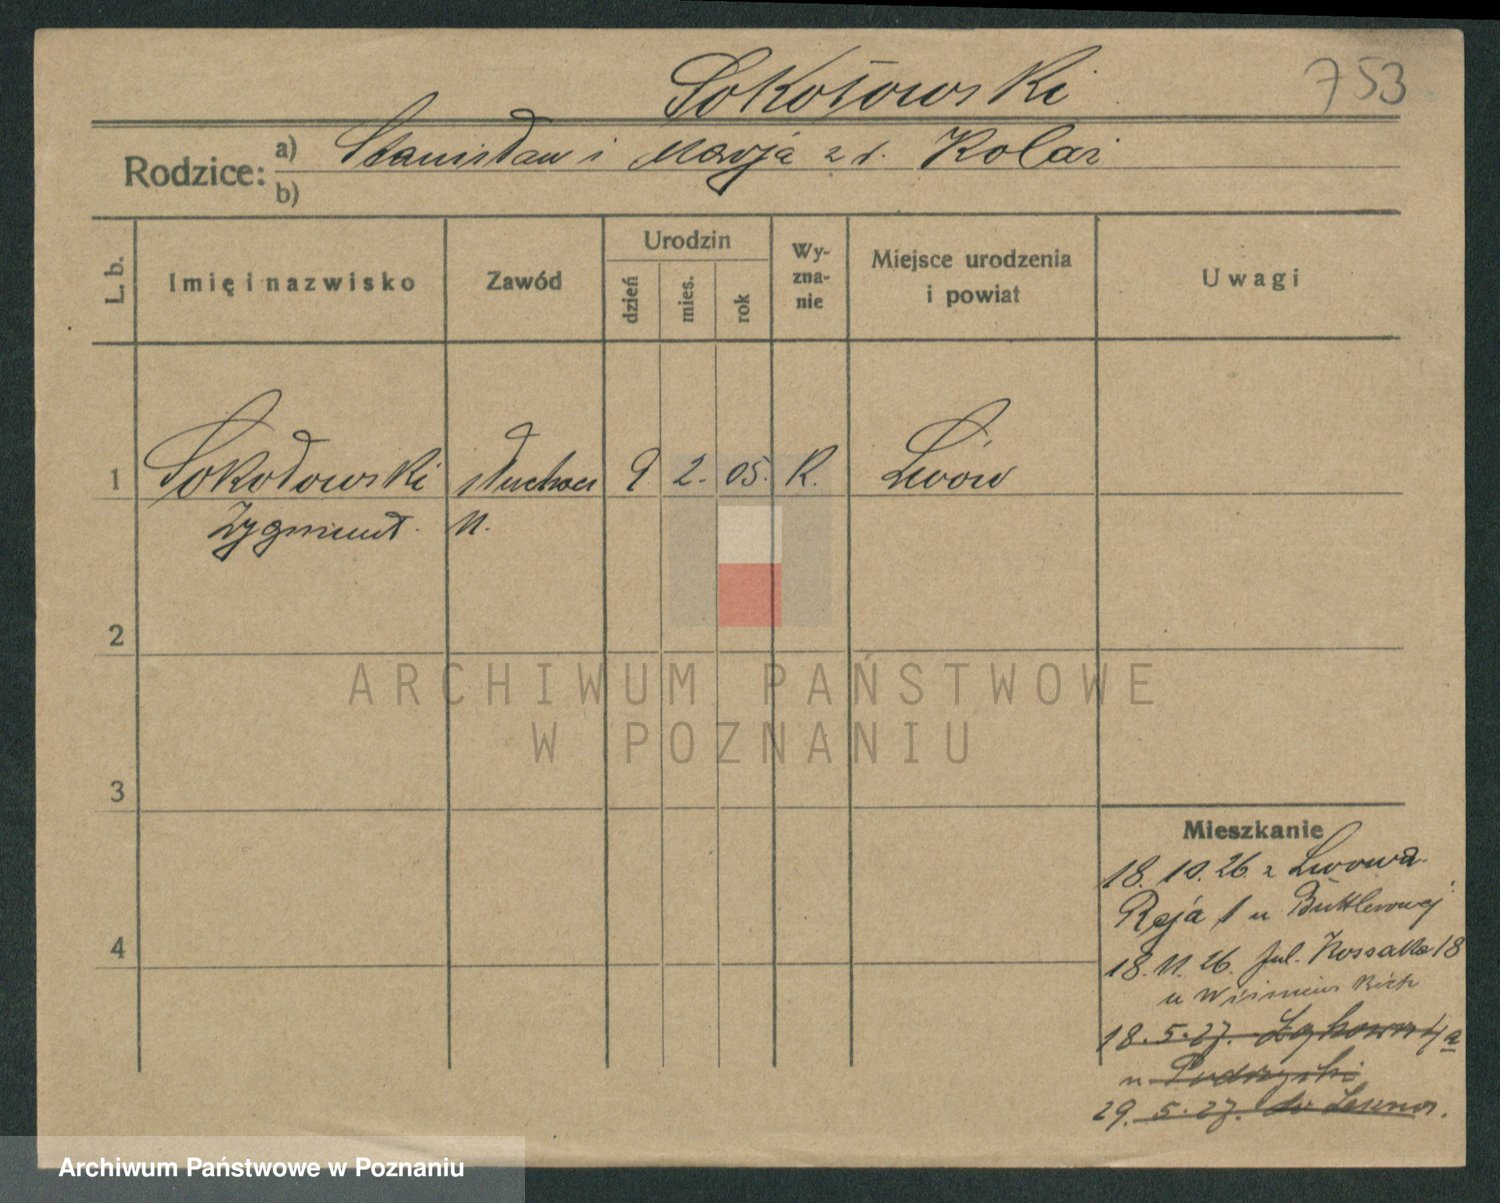 Sokołowski
753
Rodzice:
a) Stanisław i Marja z d. Kolar
b)
L. b.
Imię i nazwisko
Zawód
Urodzin
dzień
mies.
rok
Wy-
zna-
nie
Miejsce urodzenia
i powiat
Uwagi
1 Sokołowski słuchacz 9 2. 05. R. Lwów
Zygmunt. U.
2
3
4
ARCHIWUM PAŃSTWOWE
W POZNANIU
Mieszkanie
18. 10. 26 z Lwowa.
Reja 1 u Buttlerowej
18. 11. 26. Jul. Kossaka 18
u
18. 5. 27.
u
29. 5. 27. do
Archiwum Państwowe w Poznaniu